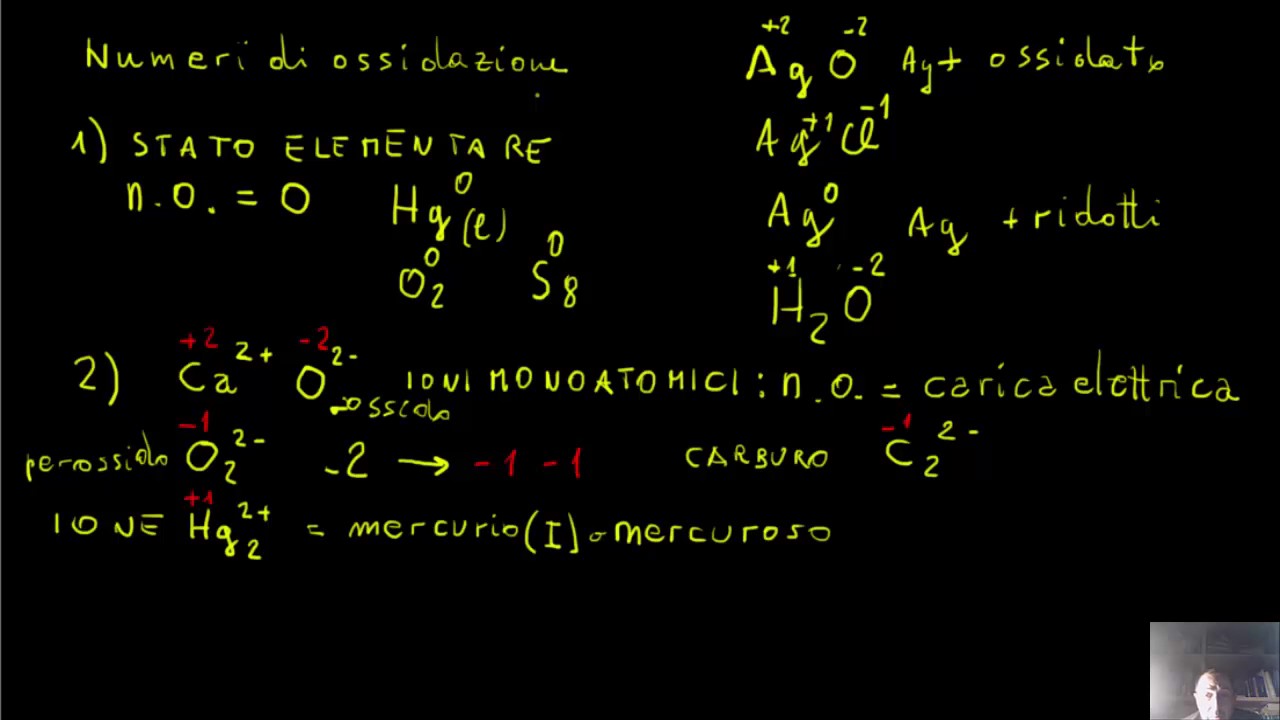 Numeri di ossidazione
1) STATO ELEMENTARE
n.O. = 0 Hg⁰(l)
O₂⁰ S₈⁰
+2 -2
AgO Ag + ossidato
Ag⁺¹Cl⁻¹
Ag⁰ Ag + ridotti
+1 -2
H₂O
+2 -2
2) Ca²⁺ O²⁻ IONI MONOATOMICI: n.O. = carica elettrica
ossido
-1 -1
perossido O₂²⁻ -2 → -1 -1 CARBURO C₂²⁻
+1
IONE Hg₂²⁺ = mercurio(I) o mercuroso